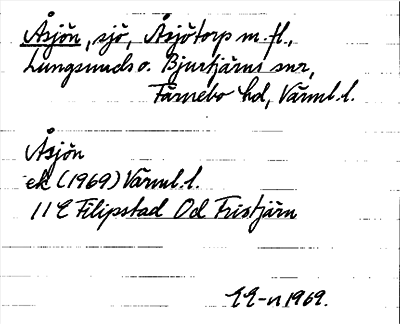 Åsjön, sjö, Åsjötorp m. fl.,
Lungsunds o. Bjurtjärns snr,
Färnebo hd, Värml. l.
Åsjön
ek (1969) Värml. l.
11 E Filipstad 0d Fristjärn
EE-n 1969.